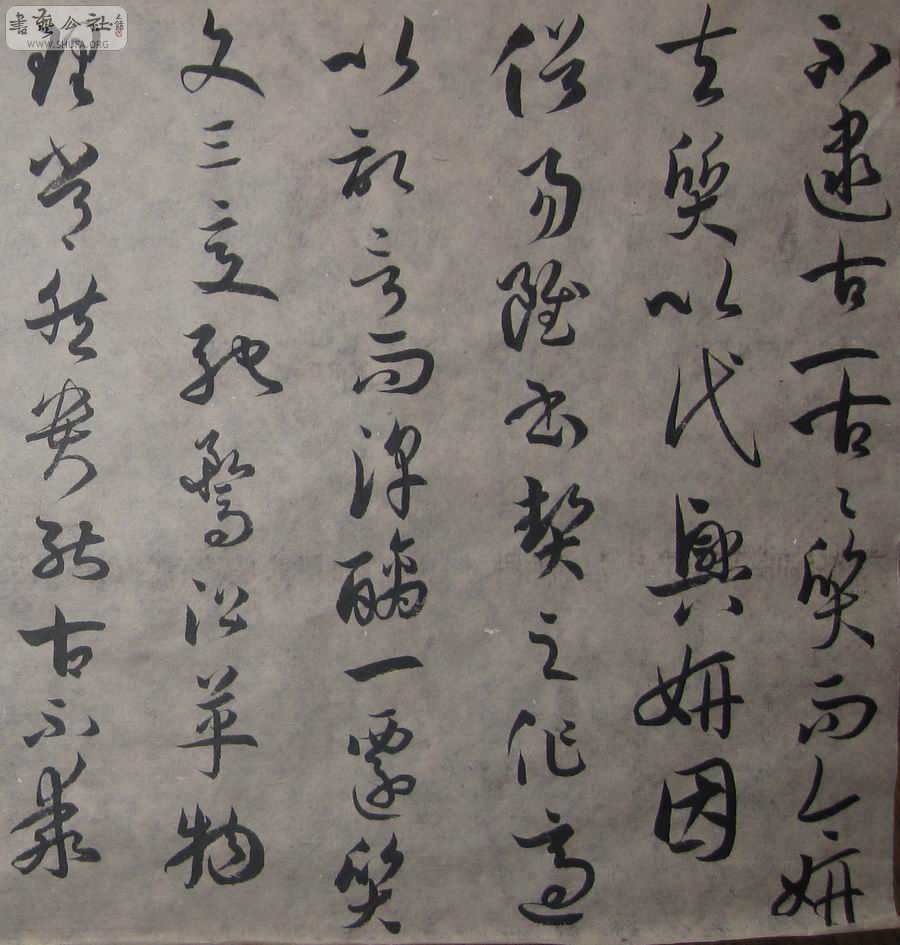 不逮古一古々質而今妍
夫質以代興妍因
俗易雖書契之作適
以記言而淳醨一遷質
文三變馳鶩沿革物
理常々然貴能古不乖
書藝公社
WWW.SHUFA.ORG